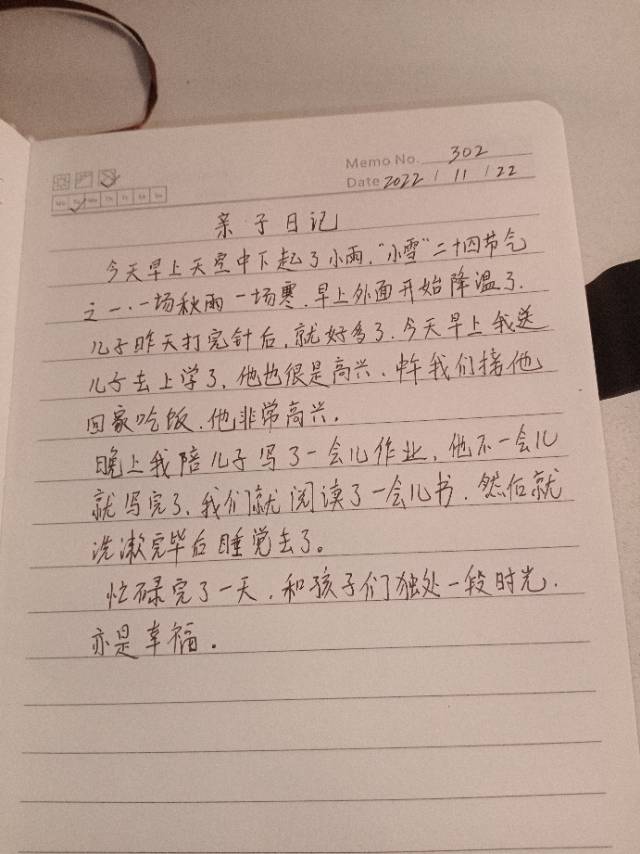 Memo No. 302
Date 2022 / 11 / 22
Mo Tu We Th Fr Sa Su
亲子日记
今天早上天空中下起了小雨,"小雪"二十四节气
之一.一场秋雨一场寒.早上外面开始降温了.
儿子昨天打完针后,就好多了.今天早上我送
儿子去上学了,他也很是高兴.中午我们接他
回家吃饭.他非常高兴.
晚上我陪儿子写了一会儿作业,他不一会儿
就写完了,我们就阅读了一会儿书.然后就
洗漱完毕后睡觉去了。
忙碌完了一天.和孩子们独处一段时光.
亦是幸福.